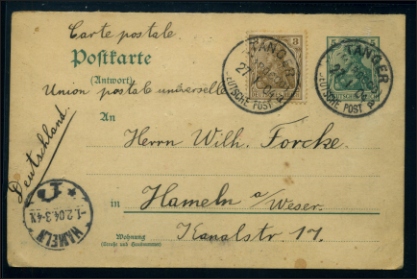 Carte postale
Postkarte
(Antwort)
Union postale universelle
An
Herrn Wilh. Förcke.
Deutschland.
in Hameln a/Weser.
Kanalstr. 17.
Wohnung
(Straße und Hausnummer)
3
5
TANGER
DEUTSCHE POST
TANGER
DEUTSCHE POST
HAMELN
-1.2.04.3-4N